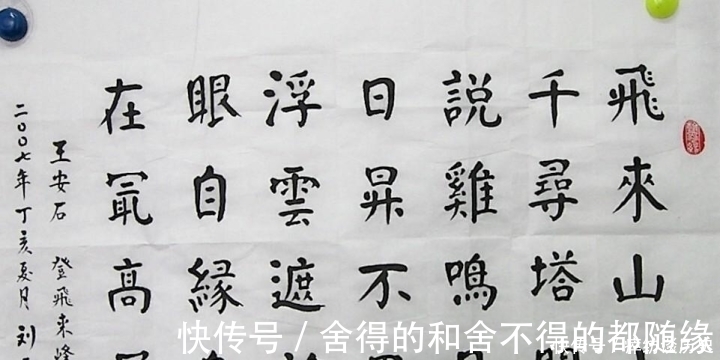 飛來山
千尋塔
説雞鳴
日昇不
浮雲遮
眼自緣
在冣高
王安石 登飛來峰
二〇〇七年丁亥夏月 刘
快传号 / 舍得的和舍不得的都随缘